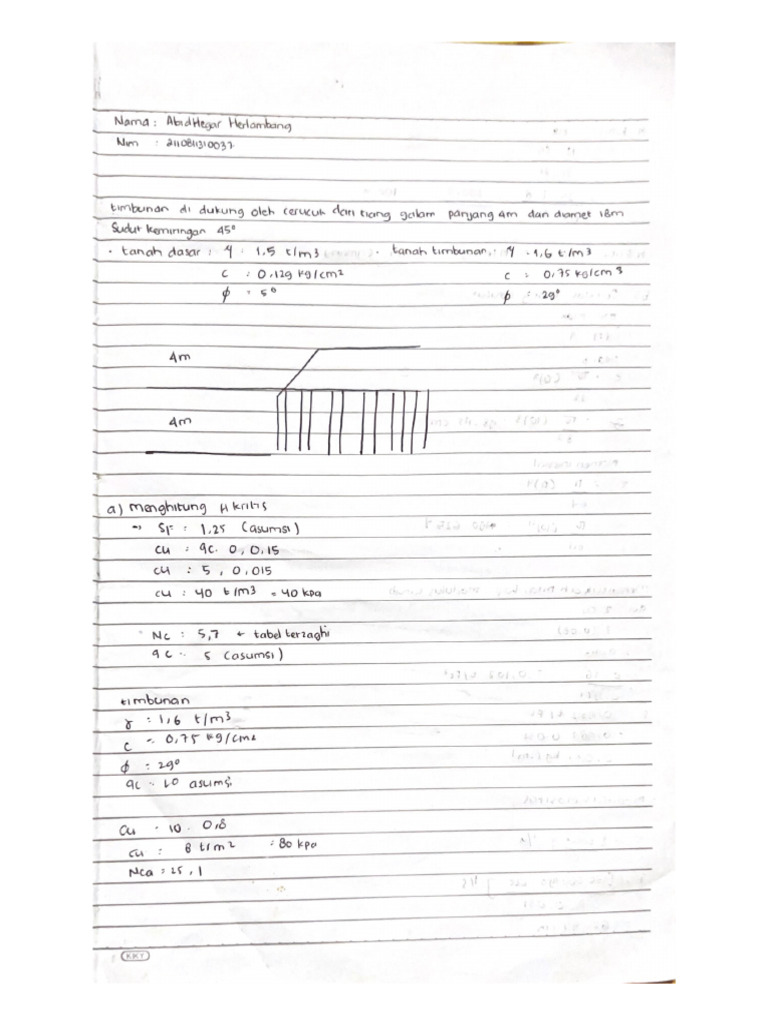 Nama : Abid Hegar Herlambang
Nim : 2110811310037
timbunan di dukung oleh cerucuk dari tiang galam panjang 4m dan diamet 18m
Sudut kemiringan 45°
• tanah dasar : γ : 1,5 t/m3 • tanah timbunan : γ : 1,6 t/m3
c : 0,129 kg/cm2 c : 0,75 kg/cm3
φ : 5° φ : 29°
4m
4m
a) menghitung H kritis
→ SF : 1,25 (asumsi)
cu : qc. 0,0,15
cu : 5 , 0,015
cu : 40 t/m3 = 40 kpa
• Nc : 5,7 ← tabel terzaghi
qc : 5 (asumsi)
timbunan
γ : 1,6 t/m3
c : 0,75 kg/cm2
φ : 29°
qc : 10 asumsi
cu : 10 . 0,8
cu : 8 t/m2 : 80 kpa
Nca : 25,1
KKY